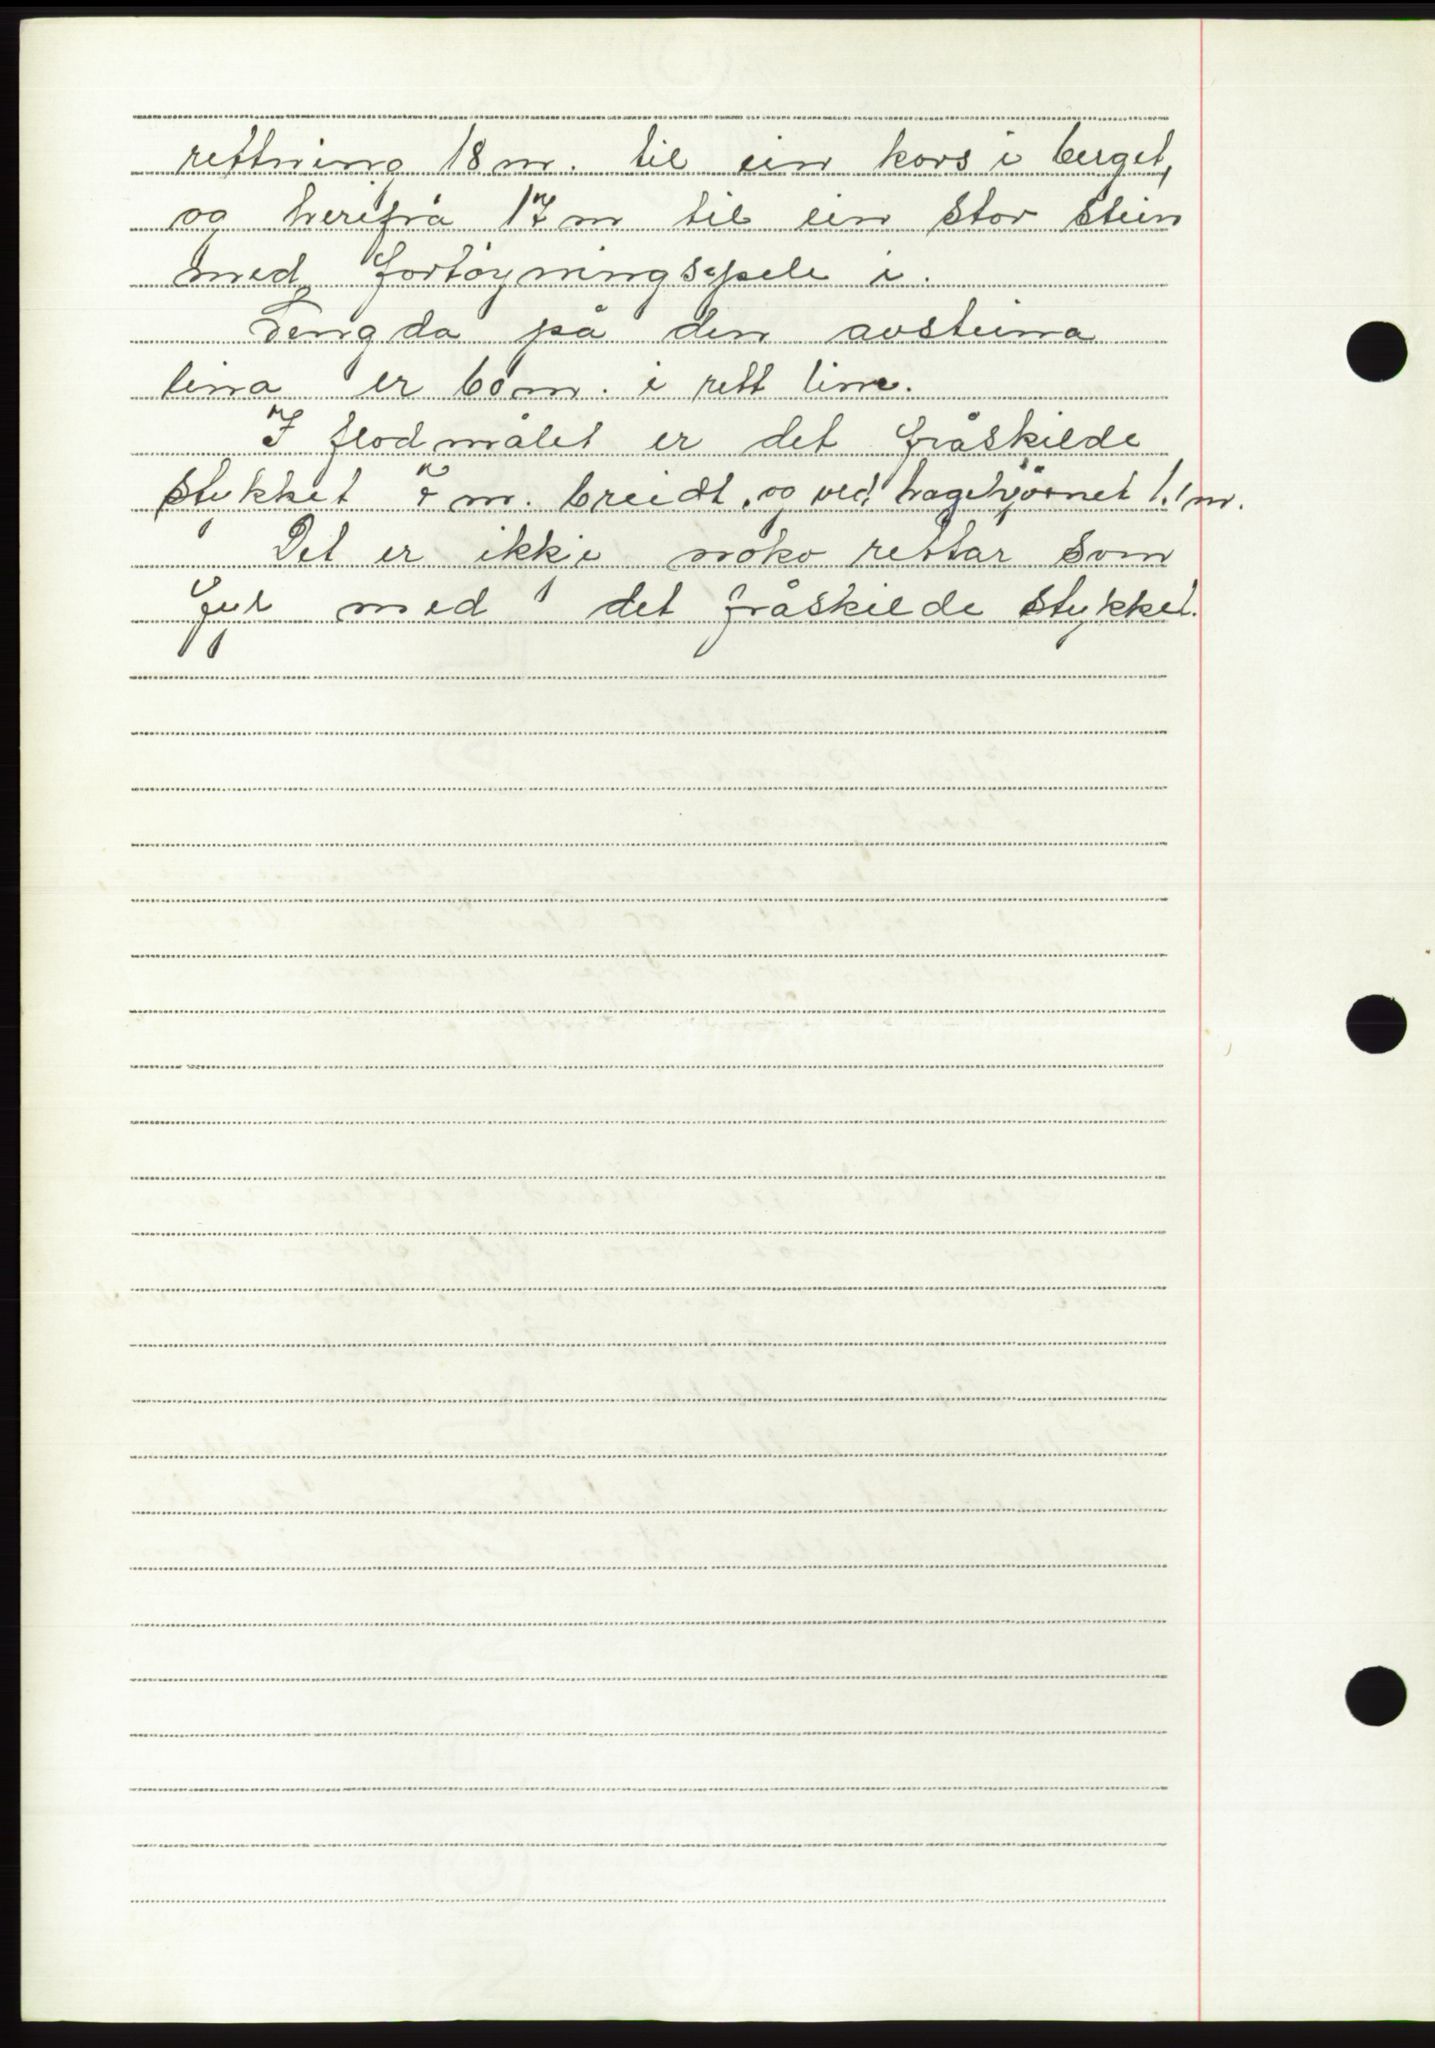 rettning 18 m. til ein kors i berget,
og herifrå 17 m til ein stor stein
med fortøyningspele i.
Lengda på den avsteina
lina er 60 m. i rett line.
I flodmålet er det fråskilde
stykket m. breidt, og ved hagehjørnet 1.1 m.
Det er ikkje noko rettar som
fyl med det fråskilde stykket.